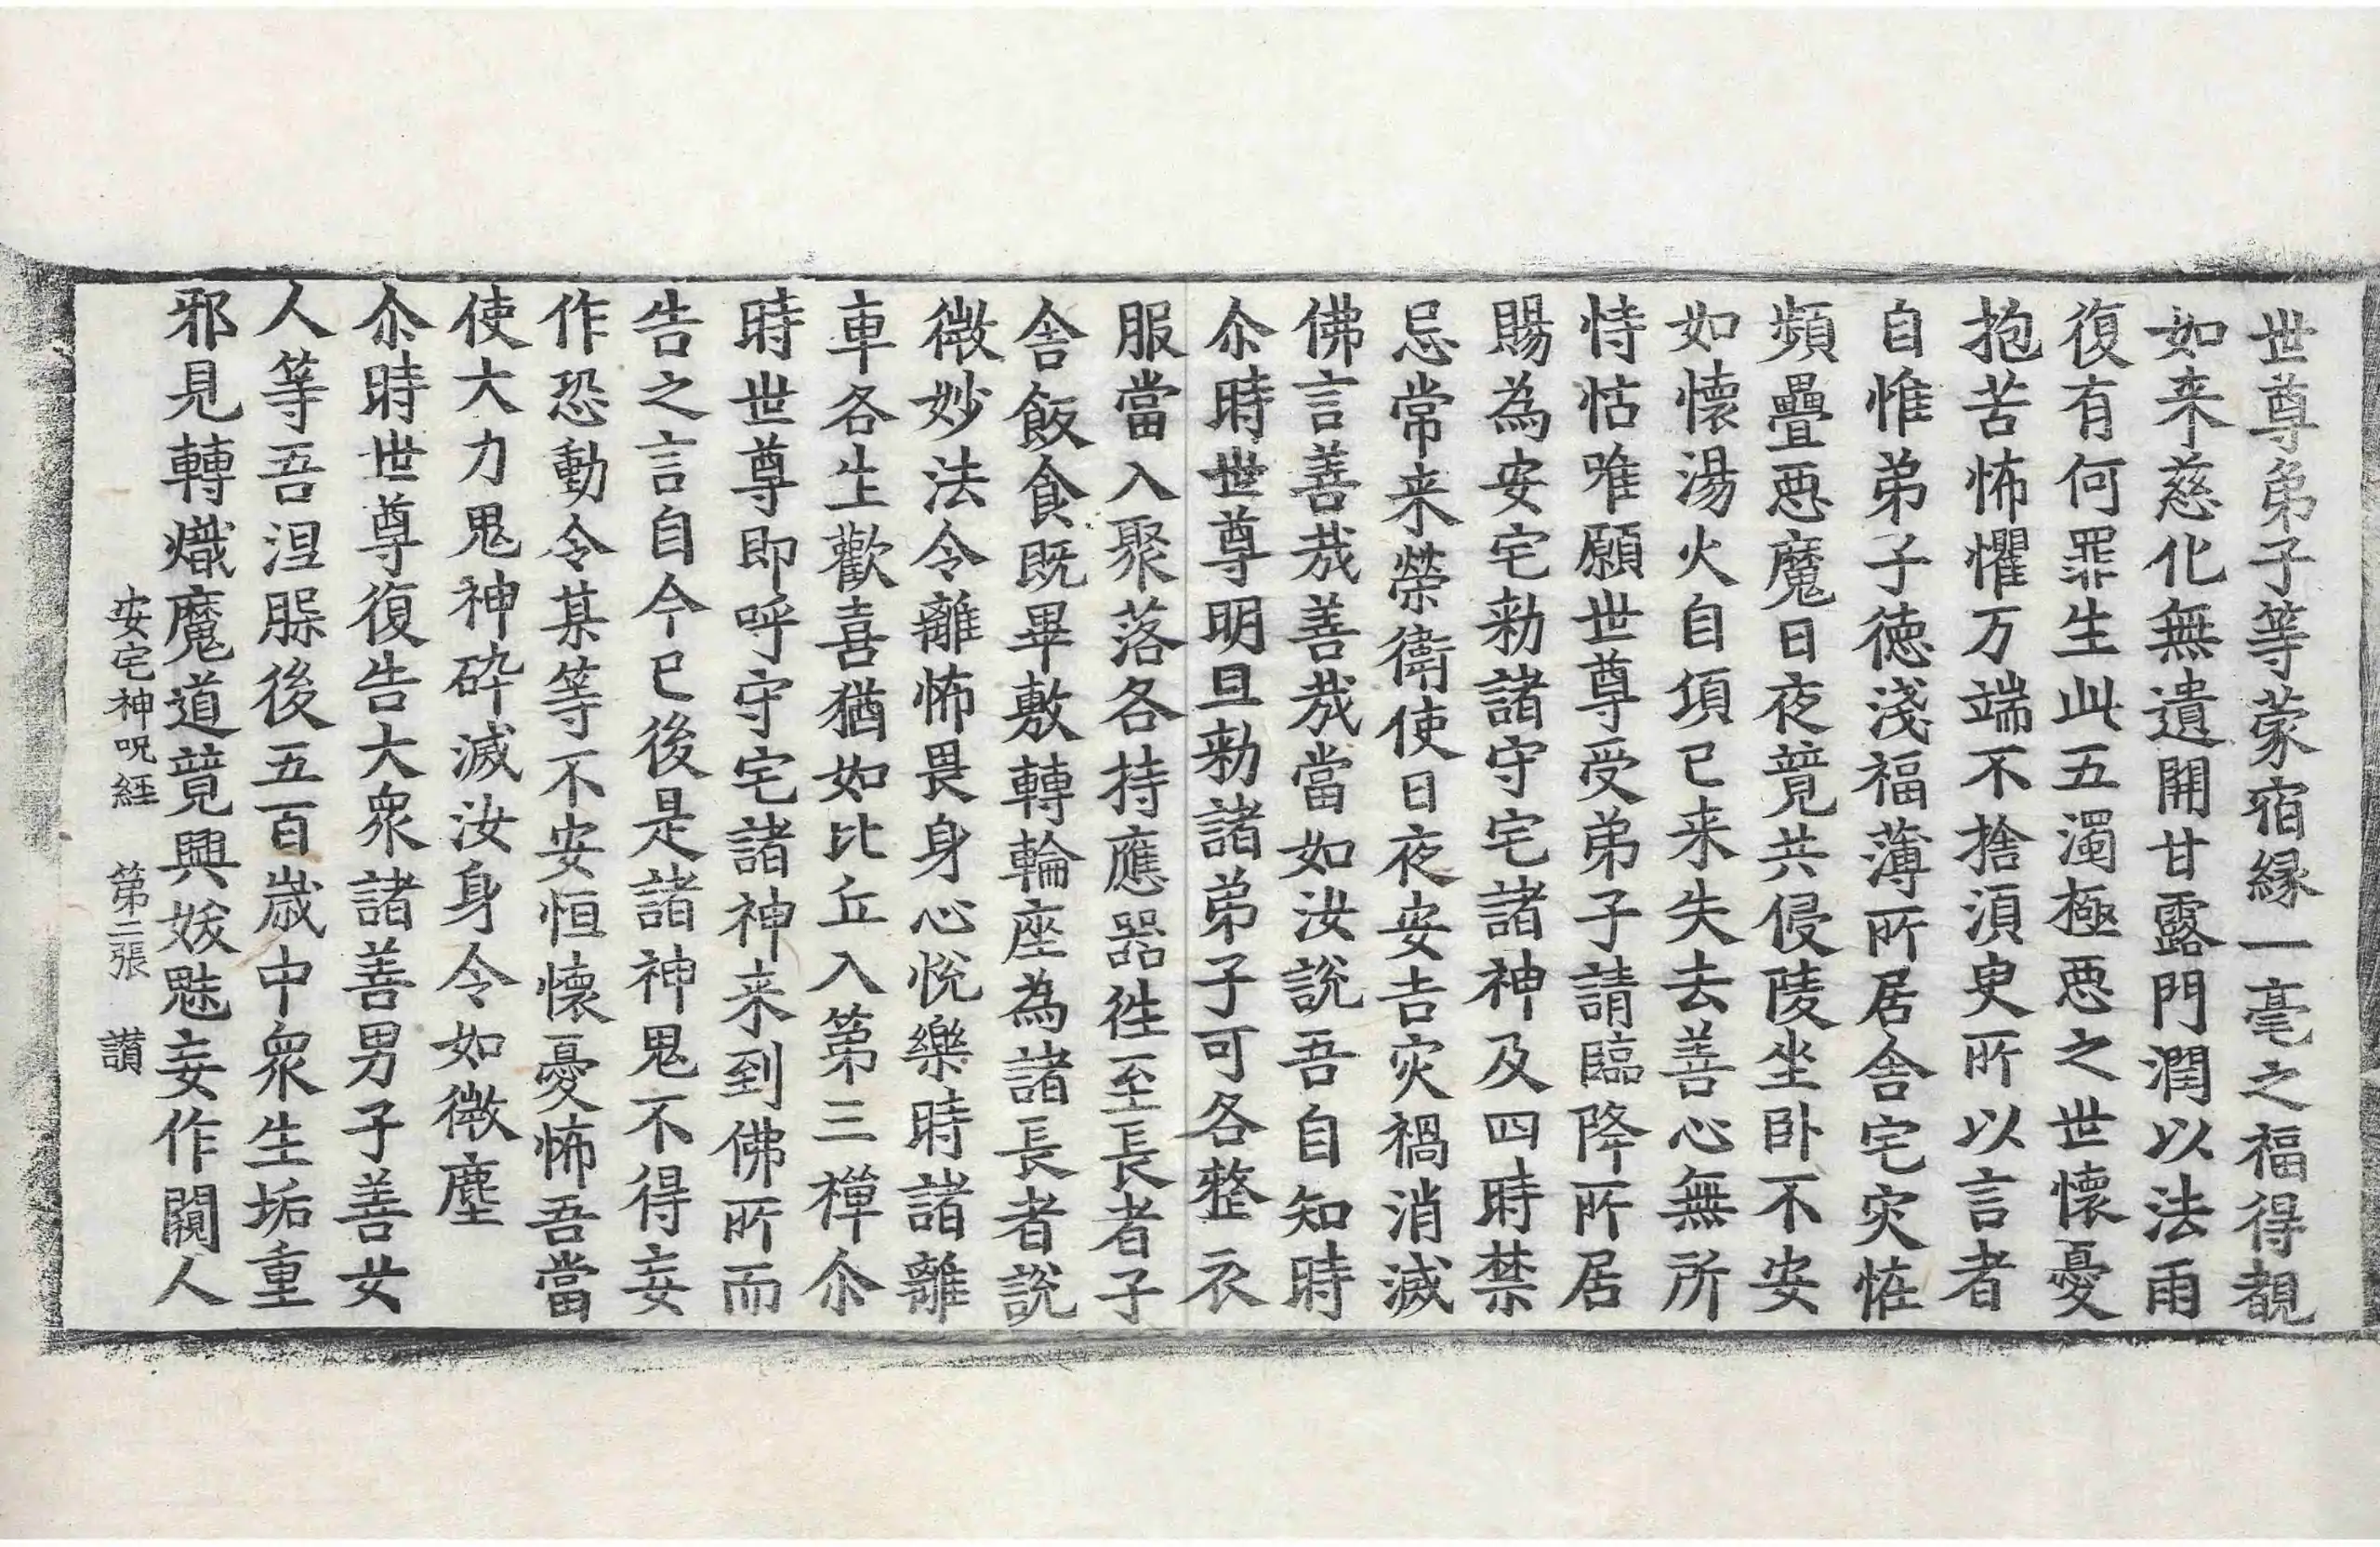 世尊弟子等蒙宿縁一毫之福得覩
如来慈化無遺開甘露門潤以法雨
復有何罪生此五濁極惡之世懷憂
抱苦怖懼万端不捨須臾所以言者
自惟弟子德淺福薄所居舍宅灾恠
頻疊惡魔日夜競共侵陵坐卧不安
如懷湯火自頃已来失去善心無所
恃怙唯願世尊受弟子請臨降所居
賜為安宅勑諸守宅諸神及四時禁
忌常来榮衛使日夜安吉灾禍消滅
佛言善哉善哉當如汝說吾自知時
尒時世尊明旦勑諸弟子可各整衣
服當入聚落各持應器徃至長者子
舍飯食既畢敷轉輪座為諸長者說
微妙法令離怖畏身心悅樂時諸離
車各生歡喜猶如比丘入第三禪尒
時世尊即呼守宅諸神来到佛所而
告之言自今已後是諸神鬼不得妄
作恐動令某等不安恒懷憂怖吾當
使大力鬼神碎滅汝身令如微塵
尒時世尊復告大衆諸善男子善女
人等吾涅槃後五百歲中衆生垢重
邪見轉熾魔道競興妖魅妄作闚人
安宅神呪經 第二張 讃